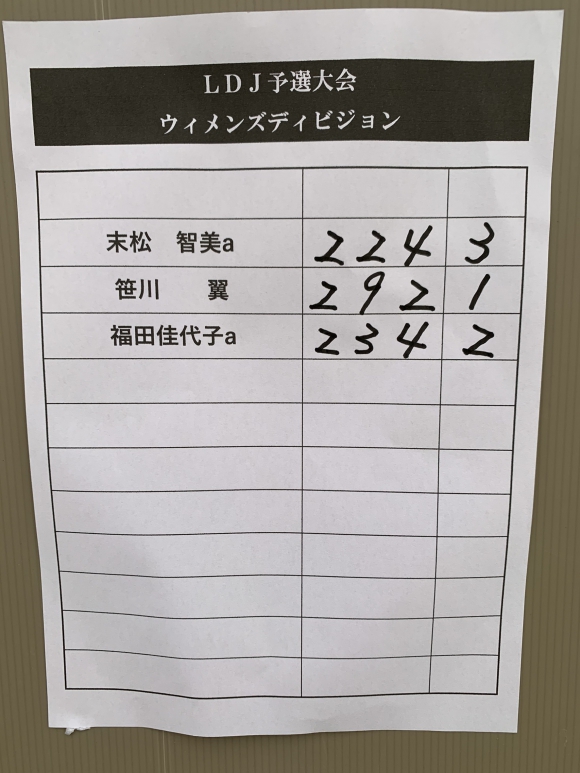 LDJ予選大会
ウィメンズディビジョン
末松　智美a 224 3
笹川　　翼 292 1
福田佳代子a 234 2